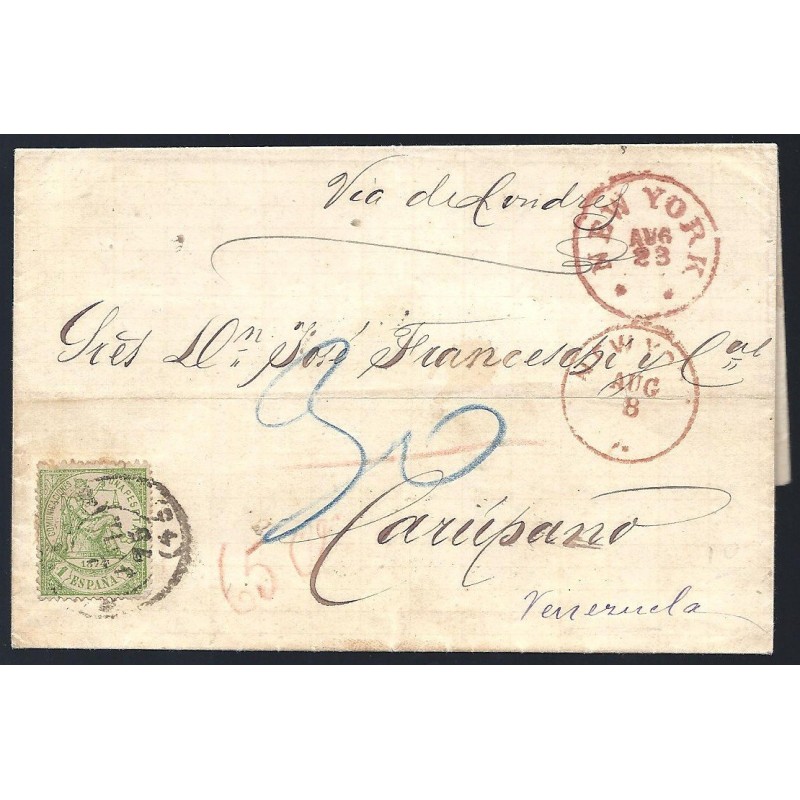 Via de Londres
NEW YORK
AUG
23
Srēs Dn José Franceschi y Cal
NEW YO
AUG
8
30
Carúpano
65 Cs
Venezuela
COMUNICACIONES
1 PESETA
1874
ESPAÑA